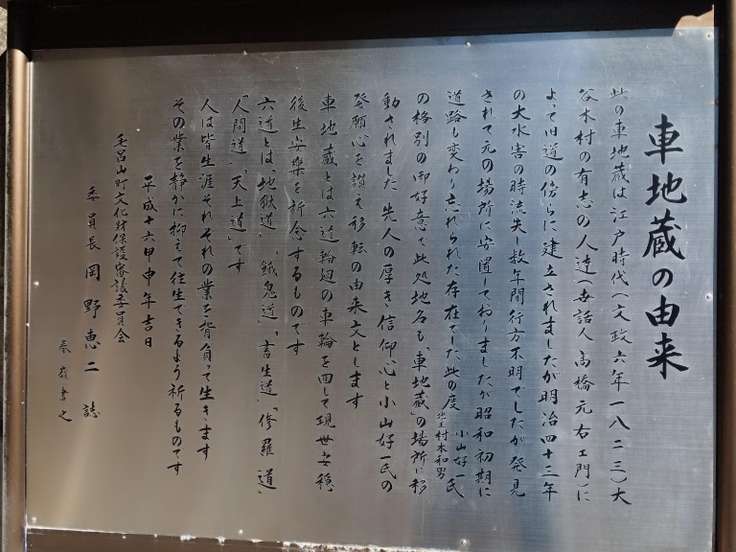 車地蔵の由来
此の車地蔵は江戸時代(文政六年一八二三)大
谷木村の有志の人達(世話人 高橋元右ェ門)に
よって旧道の傍らに建立されましたが明治四十三年
の大水害の時流失し数年間行方不明でしたが発見
されて元の場所に安置しておりましたが昭和初期に
道路も変わり忘れられた存在でした此の度 小山好一氏
地主 村本和男
の格別の御好意で此処地名も「車地蔵」の場所に移
動されました 先人の厚き信仰心と小山好一氏の
発願心を讃え移転の由来文とします
車地蔵とは六道輪廻の車輪を回して現世安穏
後生安楽を祈念するものです
六道とは、「地獄道」「餓鬼道」「畜生道」「修羅道」
「人間道」「天上道」です
人は皆生涯それぞれの業を背負って生きます
その業を静かに抑えて往生できるよう祈るものです
平成十六甲申年吉日
毛呂山町文化財保護審議委員会
委員長 岡野恵二 誌